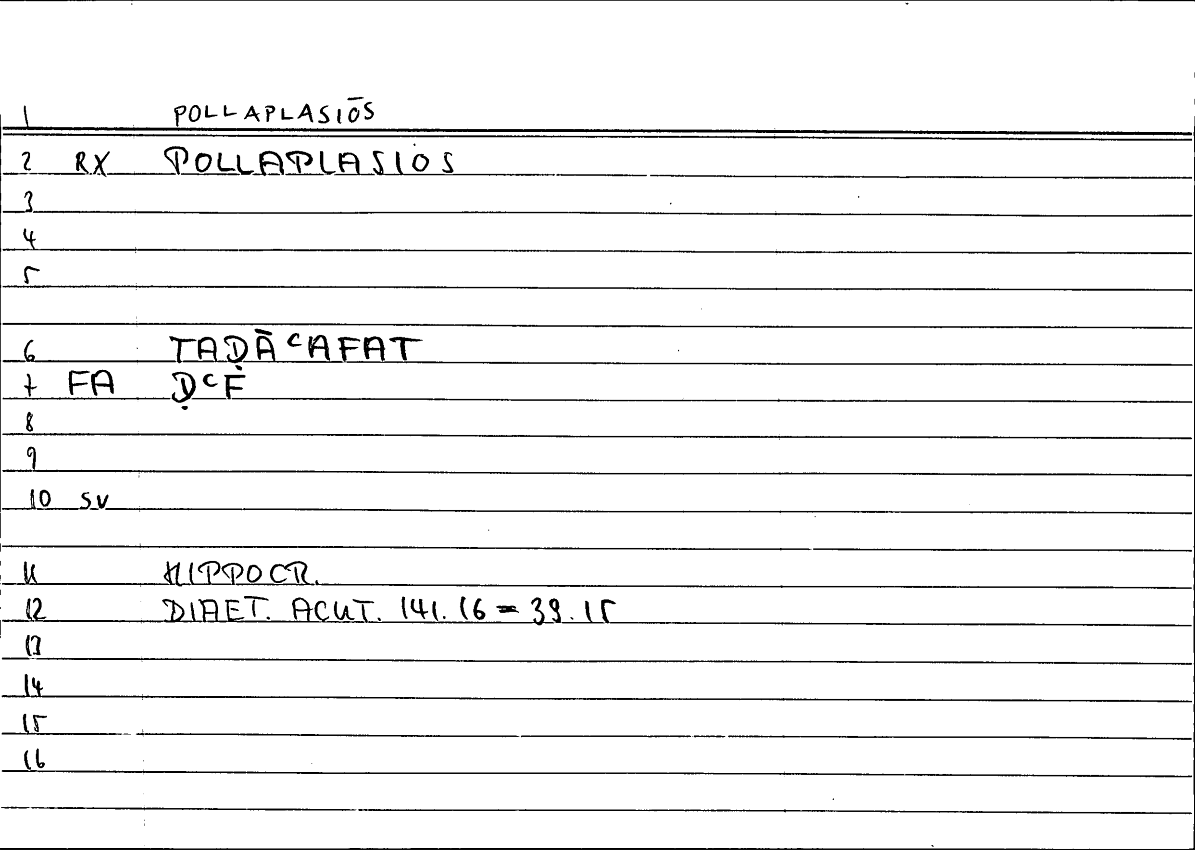 1 POLLAPLASIŌS
2 RX POLLAPLASIOS
3
4
5
6 TAḌĀᶜAFAT
7 FA ḌᶜF
8
9
10 SV
11 HIPPOCR.
12 DIAET. ACUT. 141.16 = 39.15
13
14
15
16